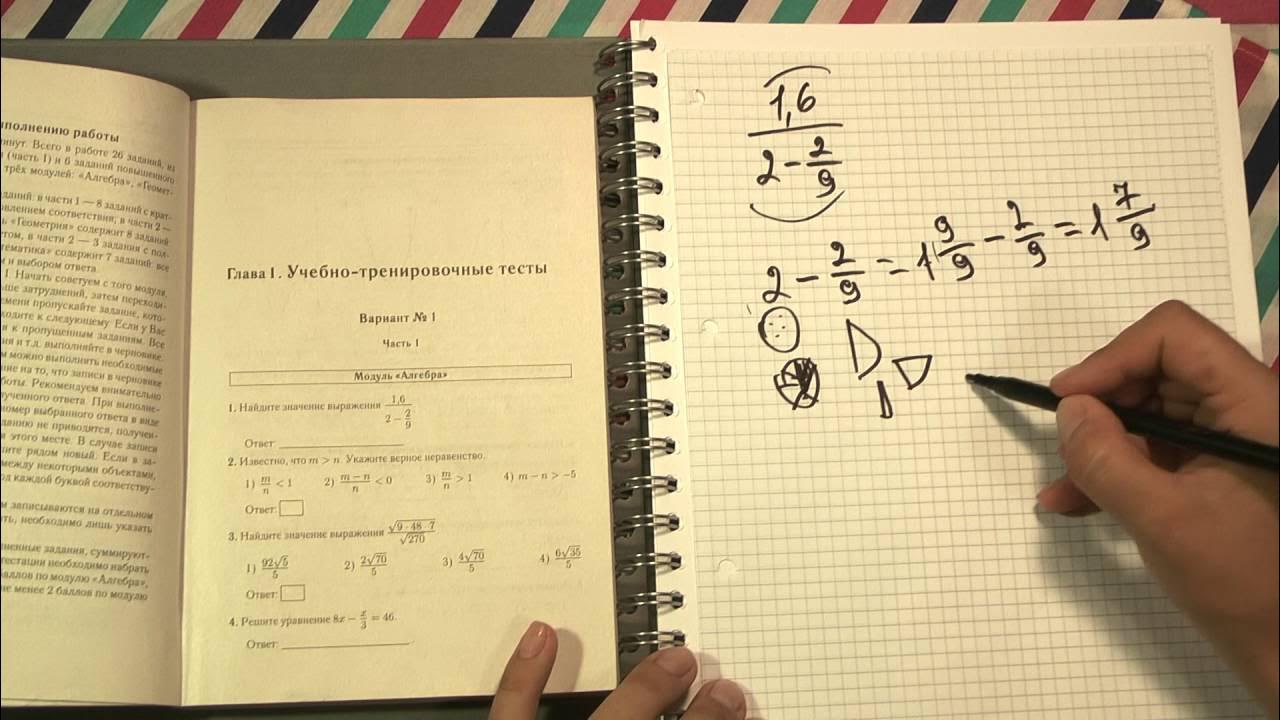 полнению работы
минут. Всего в работе 26 заданий, из
(часть I) и 6 заданий повышенного
трёх модулей: «Алгебра», «Геомет-
даний: в части 1 — 8 заданий с крат-
новлением соответствия; в части 2 —
«Геометрия» содержит 8 заданий:
том, в части 2 — 3 задания с пол-
тематика» содержит 7 заданий: все
и выбором ответа.
1. Начать советуем с того модуля,
ьше затруднений, затем переходи-
емени пропускайте задание, кото-
ходите к следующему. Если у Вас
я к пропущенным заданиям. Все
ия и т.д. выполняйте в черновике.
м можно выполнять необходимые
ние на то, что записи в черновике
боты. Рекомендуем внимательно
лученного ответа. При выполне-
номер выбранного ответа в виде
данию не приводятся, получен-
в этом месте. В случае записи
шите рядом новый. Если в за-
между некоторыми объектами,
од каждой буквой соответству-
м записываются на отдельном
ать, необходимо лишь указать
ненные задания, суммируют-
тестации необходимо набрать
баллов по модулю «Алгебра»,
не менее 2 баллов по модулю
Глава I. Учебно-тренировочные тесты
Вариант № 1
Часть 1
Модуль «Алгебра»
1. Найдите значение выражения 1,6 / (2 − 2/9)
Ответ:
2. Известно, что m > n. Укажите верное неравенство.
1) m/n < 1 2) (m−n)/n < 0 3) m/n > 1 4) m − n > −5
Ответ:
3. Найдите значение выражения √(9 · 48 · 7) / √270
1) 92√5/5 2) 2√70/5 3) 4√70/5 4) 6√35/5
Ответ:
4. Решите уравнение 8x − x/3 = 46.
Ответ:
1,6
2 − 2/9
2 − 2/9 = 1 9/9 − 2/9 = 1 7/9